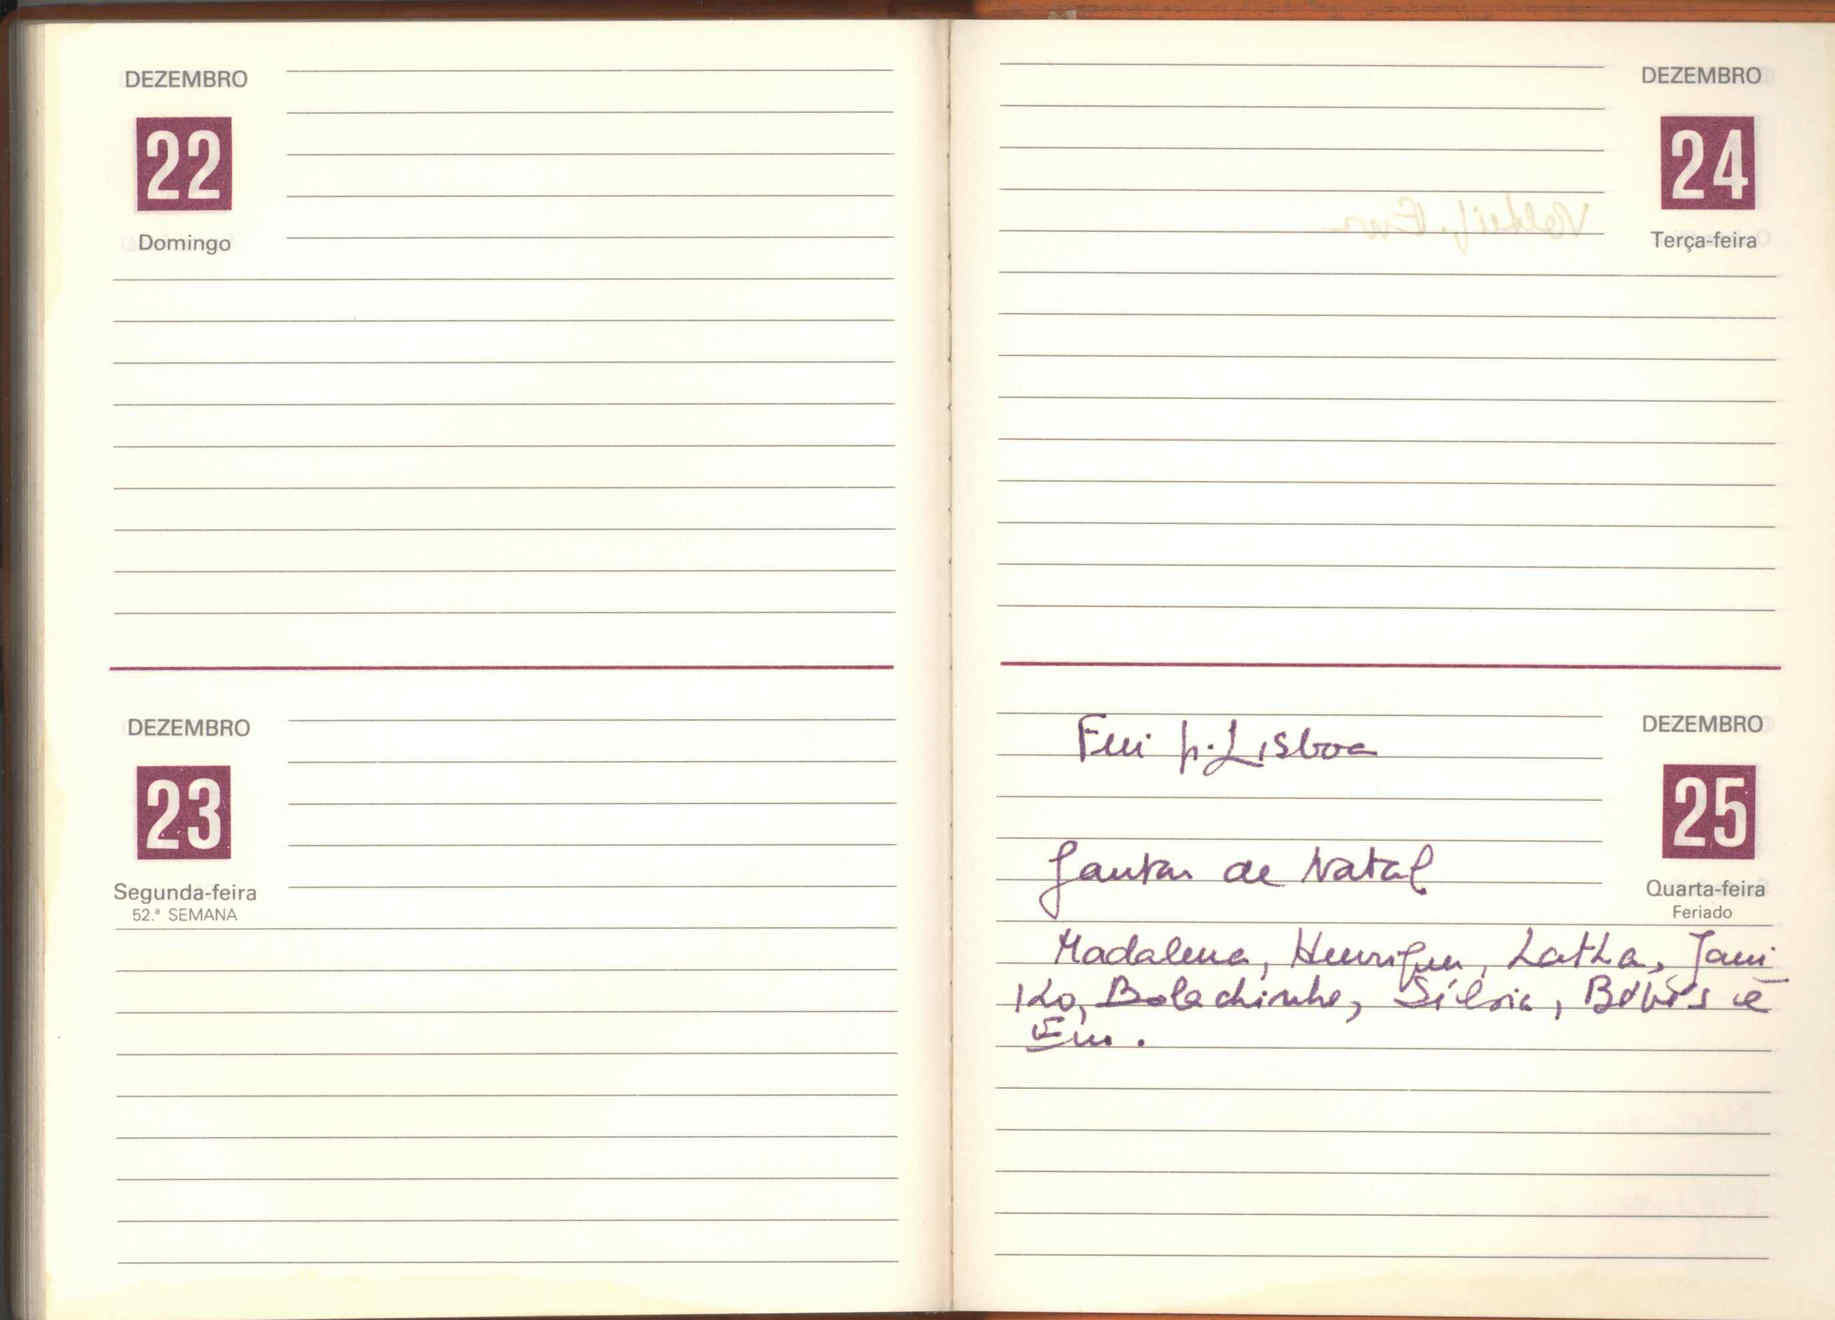 DEZEMBRO
22
Domingo
DEZEMBRO
23
Segunda-feira
52.ª SEMANA
DEZEMBRO
24
Terça-feira
DEZEMBRO
25
Quarta-feira
Feriado
Fui p. Lisboa
Jantar de Natal
Madalena, Henrique, Latha, Jami
Ko, Bolachinha, Sílvia, Bébés e
Eu.